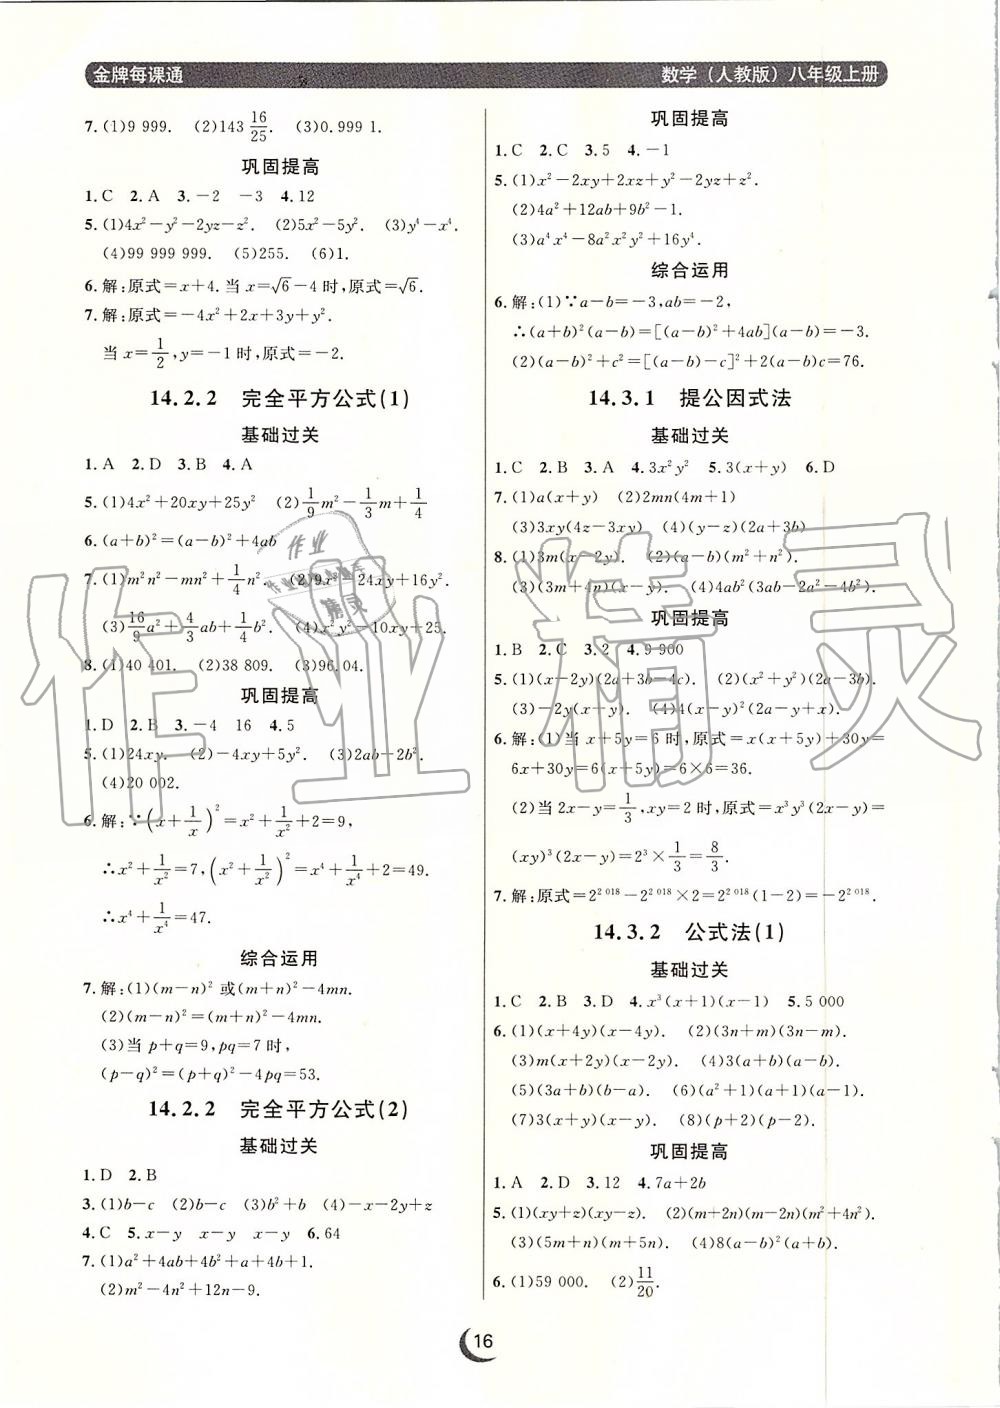 金牌每课通
数学（人教版）八年级上册
7.(1)9 999.  (2)143 16/25.  (3)0.999 1.
巩固提高
1.C  2.A  3.-2  -3  4.12
5.(1)4x²-y²-2yz-z².  (2)5x²-5y².  (3)y⁴-x⁴.
(4)99 999 999.  (5)255.  (6)1.
6.解:原式=x+4.当x=√6-4时,原式=√6.
7.解:原式=-4x²+2x+3y+y².
当x=1/2,y=-1时,原式=-2.
14.2.2  完全平方公式(1)
基础过关
1.A  2.D  3.B  4.A
5.(1)4x²+20xy+25y²  (2)1/9m²-1/3m+1/4
6.(a+b)²=(a-b)²+4ab
7.(1)m²n²-mn²+1/4n².  (2)9x²-24xy+16y².
(3)16/9a²+4/3ab+1/4b².  (4)x²y²-10xy+25.
8.(1)40 401.  (2)38 809.  (3)96.04.
巩固提高
1.D  2.B  3.-4  16  4.5
5.(1)24xy.  (2)-4xy+5y².  (3)2ab-2b².
(4)20 002.
6.解:∵(x+1/x)²=x²+1/x²+2=9,
∴x²+1/x²=7,(x²+1/x²)²=x⁴+1/x⁴+2=49.
∴x⁴+1/x⁴=47.
综合运用
7.解:(1)(m-n)²或(m+n)²-4mn.
(2)(m-n)²=(m+n)²-4mn.
(3)当p+q=9,pq=7时,
(p-q)²=(p+q)²-4pq=53.
14.2.2  完全平方公式(2)
基础过关
1.D  2.B
3.(1)b-c  (2)b-c  (3)b²+b  (4)-x-2y+z
4.C  5.x-y  x-y  x-y  6.64
7.(1)a²+4ab+4b²+a+4b+1.
(2)m²-4n²+12n-9.
巩固提高
1.C  2.C  3.5  4.-1
5.(1)x²-2xy+2xz+y²-2yz+z².
(2)4a²+12ab+9b²-1.
(3)a⁴x⁴-8a²x²y²+16y⁴.
综合运用
6.解:(1)∵a-b=-3,ab=-2,
∴(a+b)²(a-b)=[(a-b)²+4ab](a-b)=-3.
(2)(a-b)²+c²=[(a-b)-c]²+2(a-b)c=76.
14.3.1  提公因式法
基础过关
1.C  2.B  3.A  4.3x²y²  5.3(x+y)  6.D
7.(1)a(x+y)  (2)2mn(4m+1)
(3)3xy(4z-3xy)  (4)(y-z)(2a+3b)
8.(1)3m(x-2y).  (2)(a-b)(m²+n²).
(3)(3m+4n)(x-y).  (4)4ab²(3ab-2a²-4b²).
巩固提高
1.B  2.C  3.2  4.9 900
5.(1)(x-2y)(2a+3b-4c).  (2)(x²+y²)(2a-3b).
(3)-2y(x+y).  (4)4(x-y)²(2a-y+x).
6.解:(1)当x+5y=6时,原式=x(x+5y)+30y=
6x+30y=6(x+5y)=6×6=36.
(2)当2x-y=1/3,xy=2时,原式=x³y³(2x-y)=
(xy)³(2x-y)=2³×1/3=8/3.
7.解:原式=2²⁰¹⁸-2²⁰¹⁸×2=2²⁰¹⁸(1-2)=-2²⁰¹⁸.
14.3.2  公式法(1)
基础过关
1.C  2.B  3.D  4.x³(x+1)(x-1)  5.5 000
6.(1)(x+4y)(x-4y).  (2)(3n+m)(3n-m).
(3)m(x+2y)(x-2y).  (4)3(a+b)(a-b).
(5)(3a+b)(b-a).  (6)(a²+1)(a+1)(a-1).
(7)3(x+y)(x-y).  (8)(p+2)(p-2).
巩固提高
1.A  2.D  3.12  4.7a+2b
5.(1)(xy+z)(xy-z).  (2)(m+2n)(m-2n)(m²+4n²).
(3)(5m+n)(m+5n).  (4)8(a-b)²(a+b)².
6.(1)59 000.  (2)11/20.
16
作业精灵